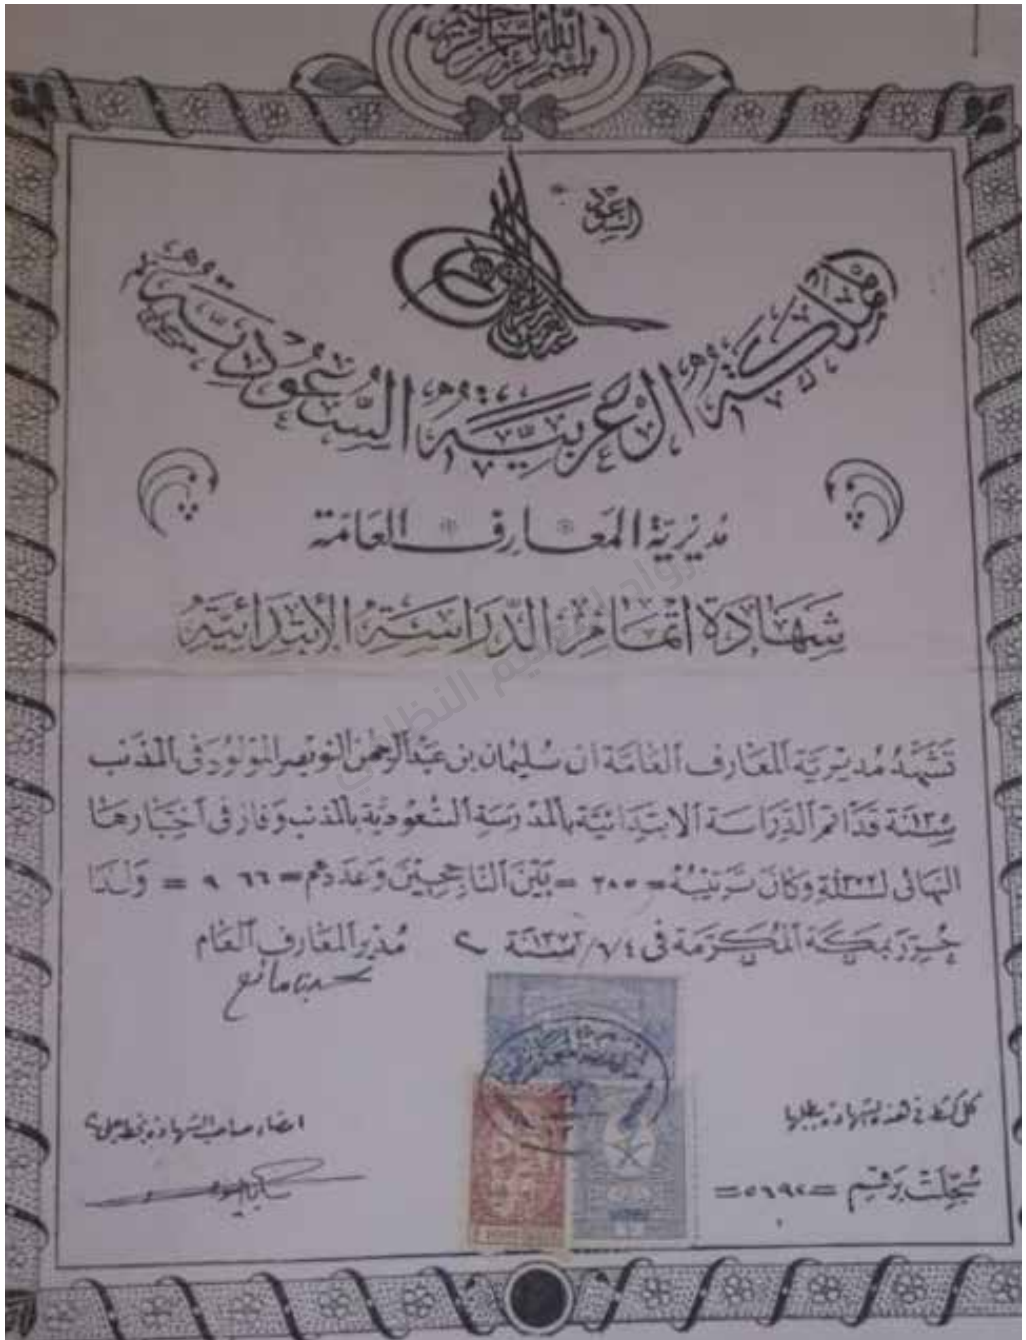 بسم الله الرحمن الرحيم
السعودية
المملكة العربية السعودية
مديرية المعارف العامة
شهادة اتمام الدراسة الابتدائية
تشهد مديرية المعارف العامة ان سليمان بن عبدالرحمن النويصر المولود في المذنب
سنة ١٣٥ قد اتم الدراسة الابتدائية بالمدرسة السعودية بالمذنب وفاز في اختبارها
النهائي لسنة ١٣٧٢ وكان ترتيبه = ٢٨٥ = بين الناجحين وعددهم = ٩٦٦ = ولذا
حرر بمكة المكرمة في ٧/٤/ سنة ١٣٧٢ مدير المعارف العام
محمد بن مانع
كل كشط في هذه الشهادة يبطلها
امضاء صاحب الشهادة بخطه
سجلت برقم = ٥٦٩٢ =